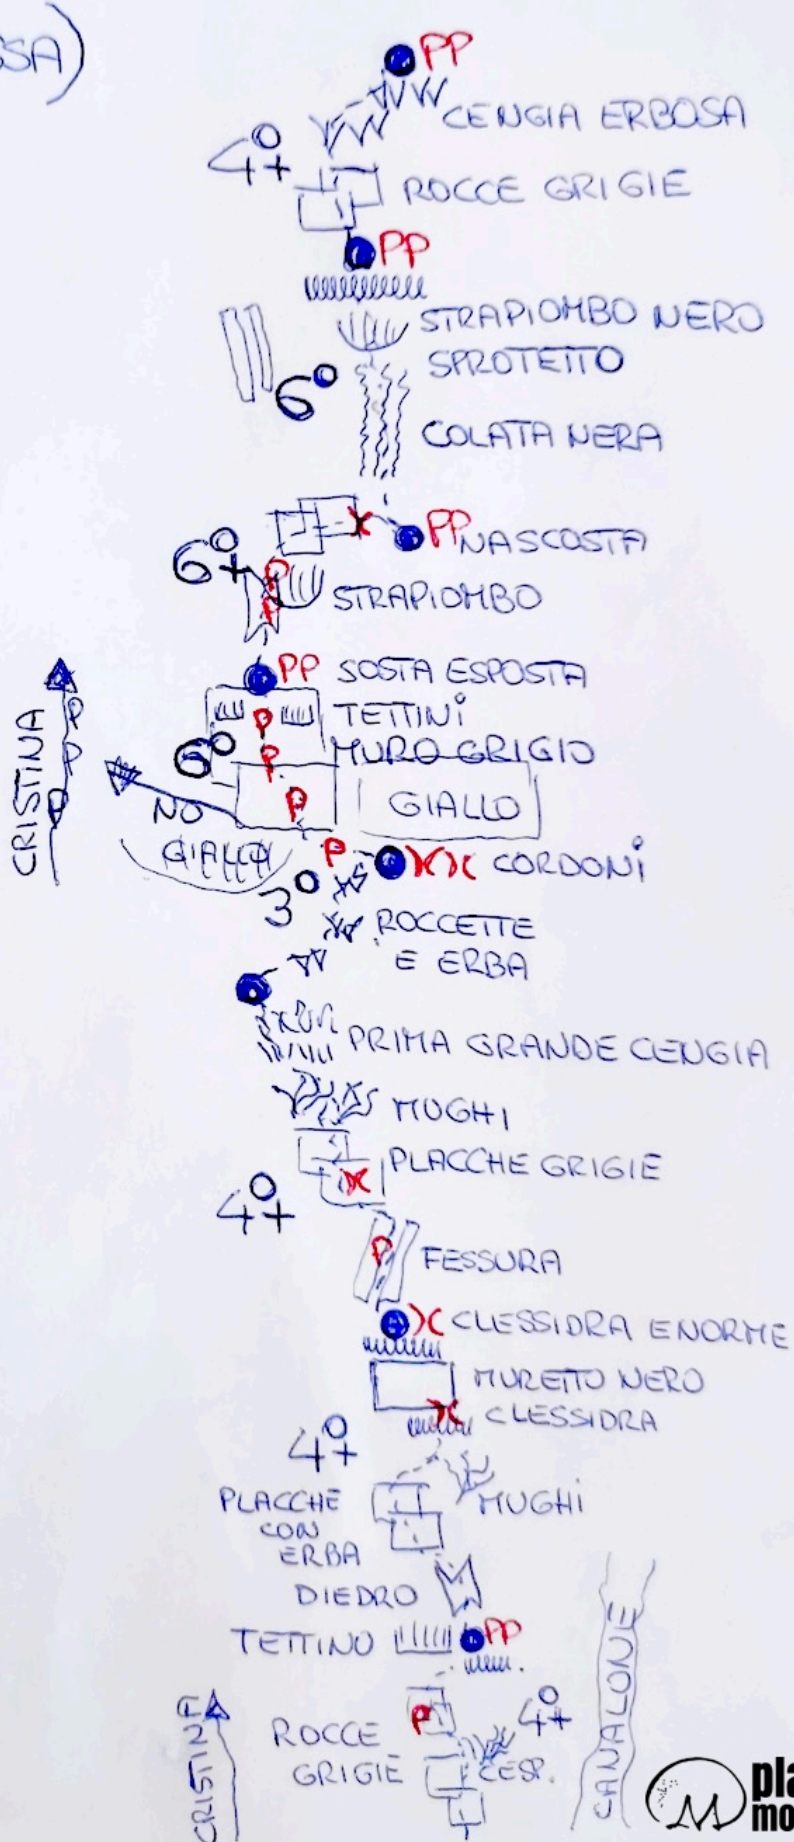 SSA)
PP
CENGIA ERBOSA
4°+
ROCCE GRIGIE
PP
STRAPIOMBO NERO
SPROTETTO
6°
COLATA NERA
PP NASCOSTA
6°+
P
P
STRAPIOMBO
PP SOSTA ESPOSTA
P TETTINI
6° P MURO GRIGIO
P GIALLO
CRISTINA
P
P
P
NO
GIALLO
P
CORDONI
3°
ROCCETTE
E ERBA
PRIMA GRANDE CENGIA
MUGHI
PLACCHE GRIGIE
4°+
P FESSURA
CLESSIDRA ENORME
MURETTO NERO
CLESSIDRA
4°+
PLACCHE
CON
ERBA
MUGHI
DIEDRO
TETTINO PP
CRISTINA
P
4°+
ROCCE
GRIGIE
CESP.
CANALONE
pla
mo